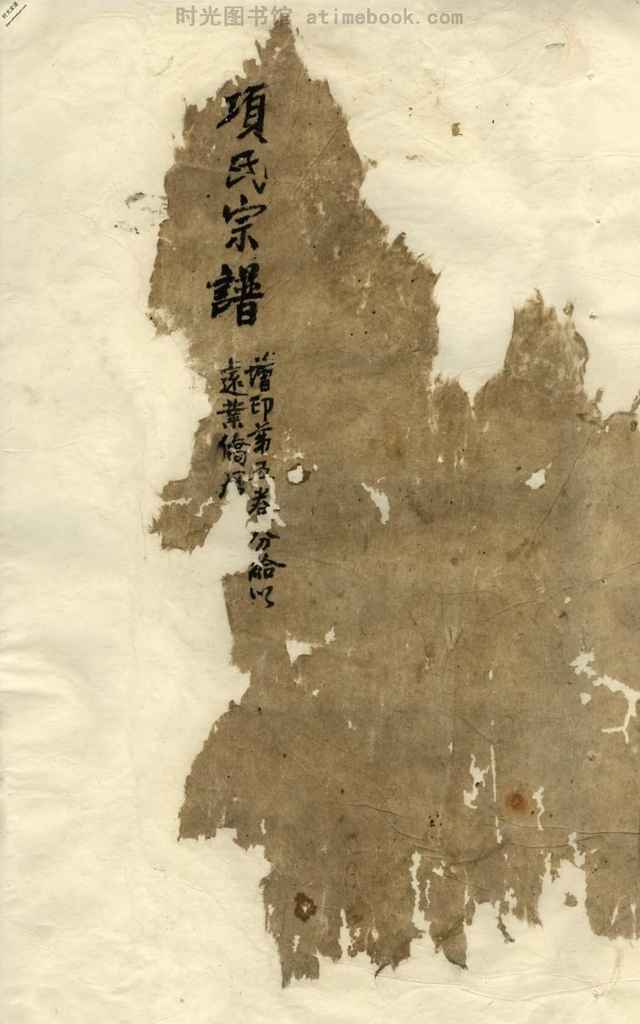 时光图书馆 atimebook.com
項氏宗譜
增印第五卷分給以
遠業僑